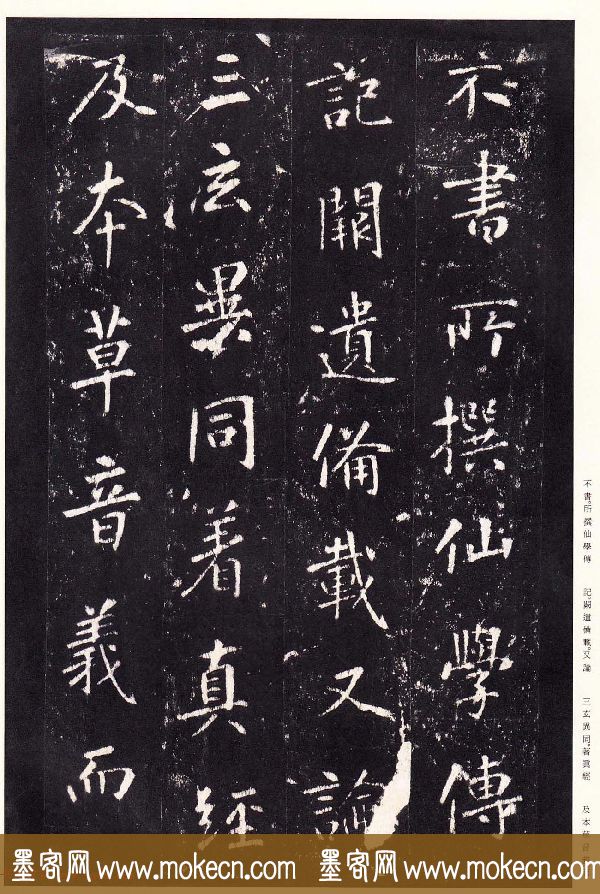 不書所撰仙學傳
記闕遺備載又論
三玄異同著真經
及本草音義而
不書。所撰仙學傳
記。闕遺備載。又論
三玄異同。著眞經
及本草音
墨客网 www.mokecn.com 墨客网 www.mokecn.com